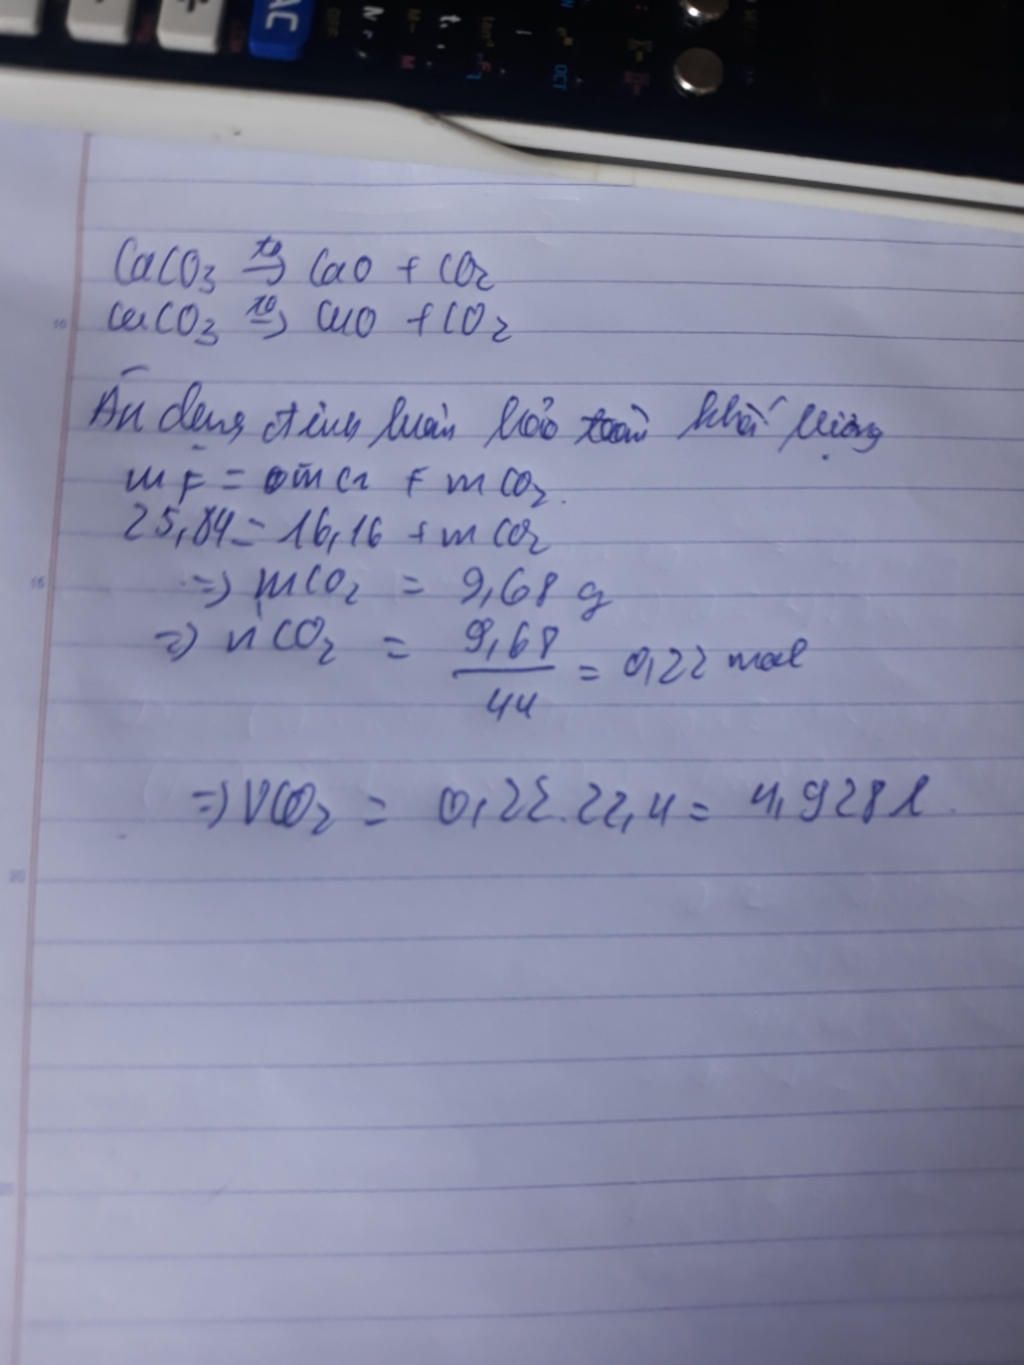 AC
OCT
M
CaCO3 t0→ CaO + CO2
CuCO3 t0→ CuO + CO2
Áp dụng định luật bảo toàn khối lượng
m F = m G + m CO2.
25,84 = 16,16 + m CO2
=> mCO2 = 9,68 g
=> nCO2 = 9,68 / 44 = 0,22 mol
=> VCO2 = 0,22.22,4 = 4,928 l
10
15
20